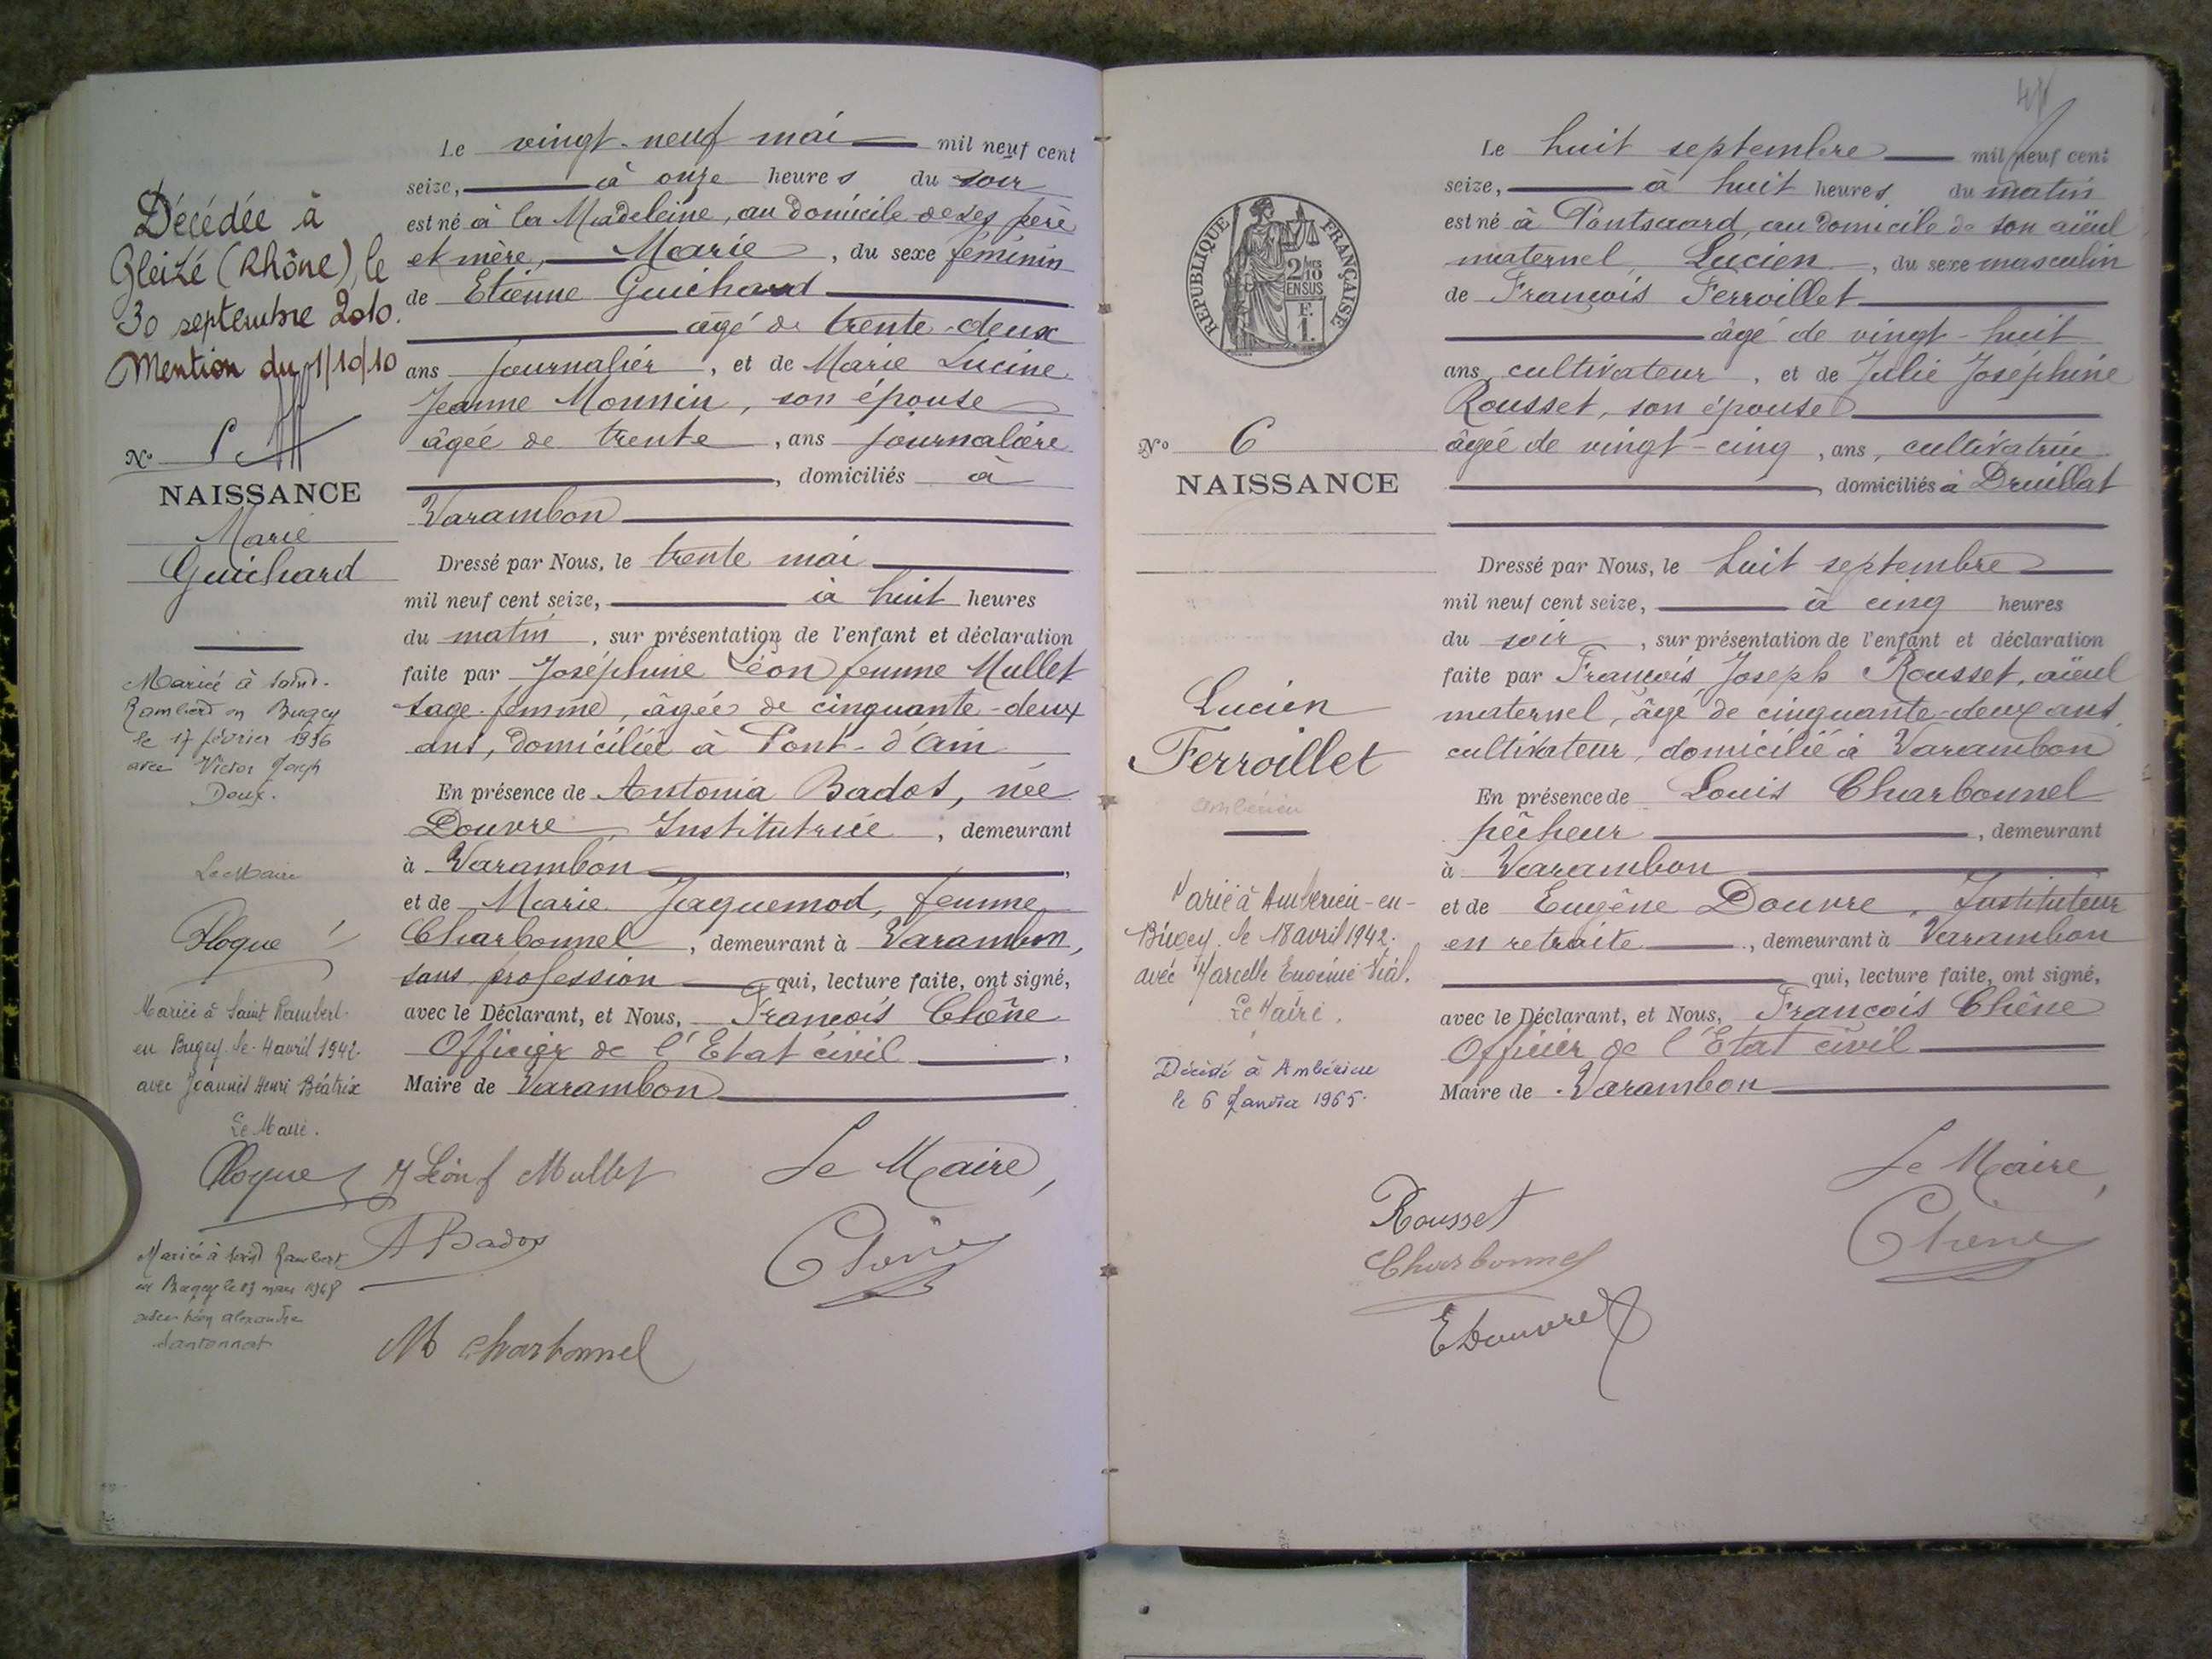 Décédée à
Gleizé (Rhône), le
30 septembre 2010.
Mention du 1/10/10
N° 5
NAISSANCE
Marie
Guichard
Mariée à Saint-
Rambert en Bugey
le 17 février 1936
avec Victor Joseph
Doux.
Le Maire
Ploque
Mariée à Saint Rambert-
en Bugey le 4 avril 1942
avec Joannès Henri Béatrix
Le Maire.
Ploque
Mariée à Saint Rambert
en Bugey le mars 1948
avec Léon Alexandre
Le vingt-neuf mai mil neuf cent
seize, à onze heures du soir
est né à la Madeleine, au domicile de ses père
et mère, Marie, du sexe féminin
de Etienne Guichard
âgé de trente-deux
ans journalier, et de Marie Lucine
Jeanne Monnin, son épouse
âgée de trente, ans journalière
, domiciliés à
Varambon
Dressé par Nous, le trente mai
mil neuf cent seize, à huit heures
du matin, sur présentation de l'enfant et déclaration
faite par Joséphine Léon femme Mullet
sage-femme, âgée de cinquante-deux
ans, domiciliée à Pont-d'Ain
En présence de Antonia Badot, née
Douvre, Institutrice, demeurant
à Varambon,
et de Marie Jaquemod, femme
Charbonnel, demeurant à Varambon,
sans profession qui, lecture faite, ont signé,
avec le Déclarant, et Nous, François Chêne
Officier de l'Etat civil,
Maire de Varambon
J Léon f Mullet
Le Maire,
A Badot
Chêne
M Charbonnel
48
REPUBLIQUE FRANÇAISE
2/10 EN SUS
F. 1.
N° 6
NAISSANCE
Lucien
Ferroillet
Ambérieu
Marié à Ambérieu-en-
Bugey, le 18 avril 1942.
avec Marcelle Eugénie Vial.
Le Maire.
Décédé à Ambérieu
le 6 Janvier 1965.
Le huit septembre mil neuf cent
seize, à huit heures du matin
est né à Pontsuard, au domicile de son aïeul
maternel, Lucien, du sexe masculin
de François Ferroillet
âgé de vingt-huit
ans, cultivateur, et de Julie Joséphine
Rousset, son épouse
âgée de vingt-cinq, ans, cultivatrice
, domiciliés à Druillat
Dressé par Nous, le huit septembre
mil neuf cent seize, à cinq heures
du soir, sur présentation de l'enfant et déclaration
faite par François Joseph Rousset, aïeul
maternel, âgé de cinquante-deux ans,
cultivateur, domicilié à Varambon
En présence de Louis Charbonnel
pêcheur, demeurant
à Varambon
et de Eugène Douvre, Instituteur
en retraite, demeurant à Varambon
qui, lecture faite, ont signé,
avec le Déclarant, et Nous, François Chêne
Officier de l'Etat civil
Maire de Varambon
Le Maire,
Rousset
Chêne
Charbonnel
E Douvre